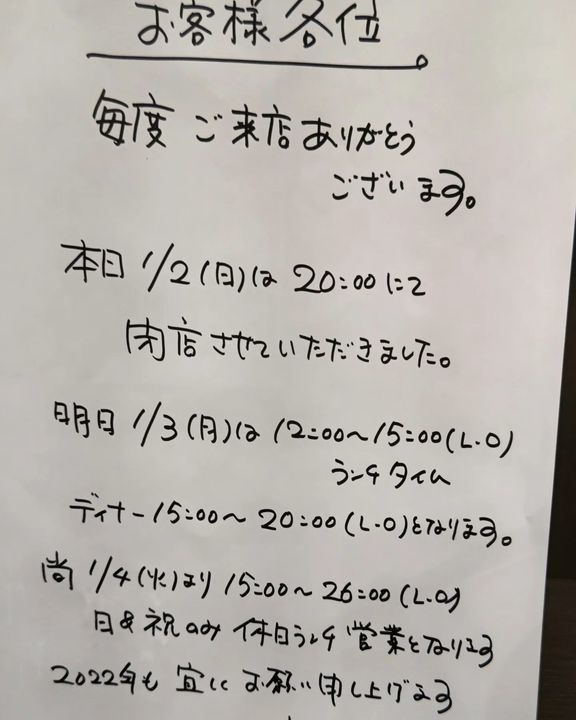 お客様各位
毎度 ご来店ありがとう
ございます。
本日 1/2(日)は 20:00にて
閉店させていただきました。
明日 1/3(月)は 12:00〜15:00(L.O)
ランチタイム
ディナー15:00〜 20:00(L.O)となります。
尚 1/4(火)より 15:00〜26:00(L.O)
日&祝のみ 休日ランチ 営業となります
2022年も 宜しくお願い申し上げます